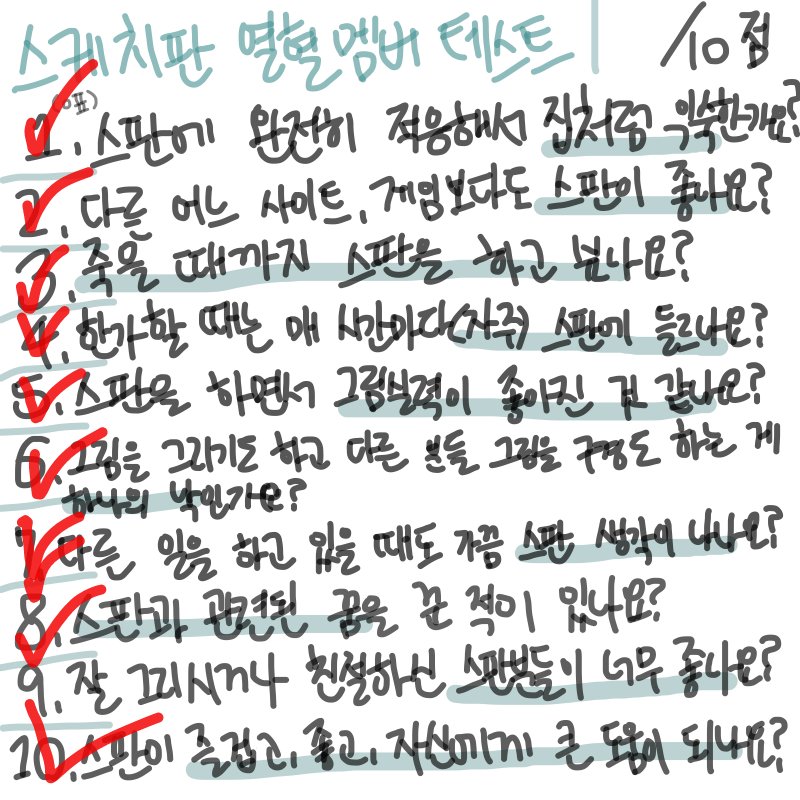 스케치판 열혈멤버 테스트 /10점
(이표)
1. 스판에 완전히 적응해서 집처럼 익숙한가요?
2. 다른 어느 사이트, 게임보다도 스판이 좋나요?
3. 죽을 때까지 스판을 하고 싶나요?
4. 한가할 때는 매 시간마다(자주) 스판에 들르나요?
5. 스판을 하면서 그림실력이 좋아진 것 같나요?
6. 그림을 그리기도 하고 다른 분들 그림을 구경도 하는 게
하나의 낙인가요?
7. 다른 일을 하고 있을 때도 가끔 스판 생각이 나나요?
8. 스판과 관련된 꿈을 꾼 적이 있나요?
9. 잘 그리시거나 친절하신 스판분들이 너무 좋나요?
10. 스판이 즐겁고, 좋고, 자신에게 큰 도움이 되나요?